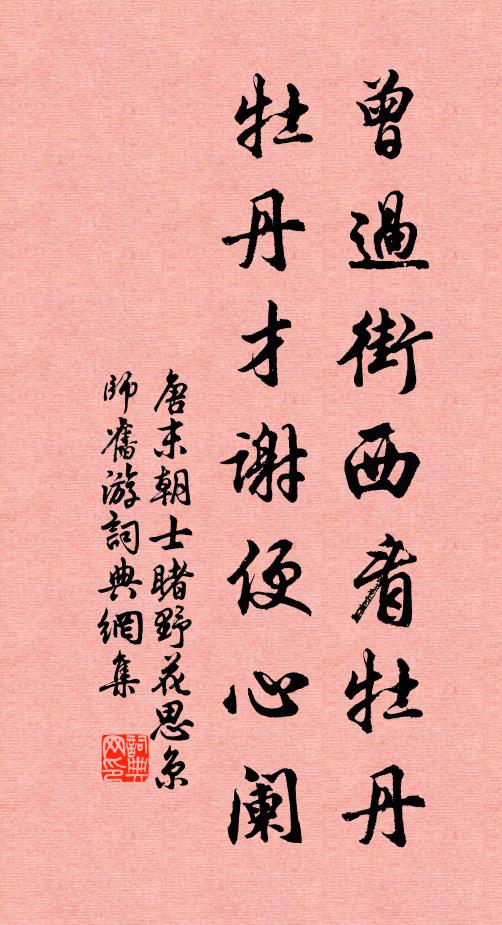 曾過街西看牡丹
牡丹才謝便心闌
唐末朝士睹野花思京
師舊游詞典網集
詞典
网印